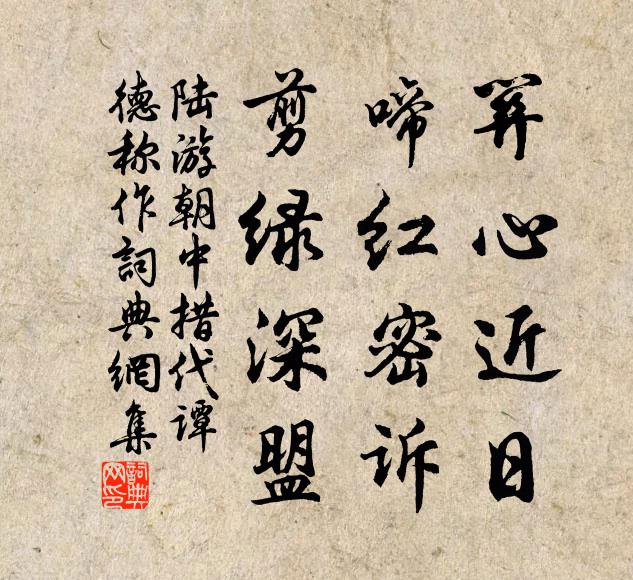 关心近日
啼红密诉
剪绿深盟
陆游朝中措代谭
德称作詞典網集
詞典
网印